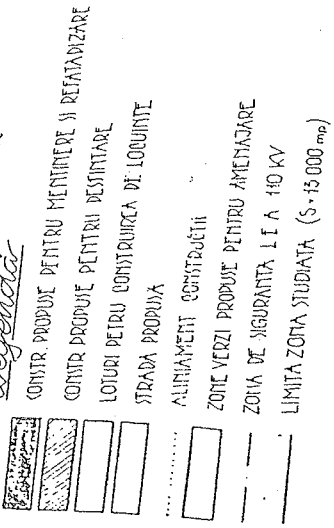 Legendă
CONSTR. PROPUSE PENTRU MENTINERE SI REFATADIZARE
CONSTR PROPUSE PENTRU DESFINTARE
LOTURI PETRU CONSTRUIREA DE LOCUINTE
STRADA PROPUSA
ALINIAMENT CONSTRUCTII
ZONE VERZI PROPUSE PENTRU AMENAJARE
ZONA DE SIGURANTA LEA 110 KV
LIMITA ZONA STUDIATA (S=13 000 mp)